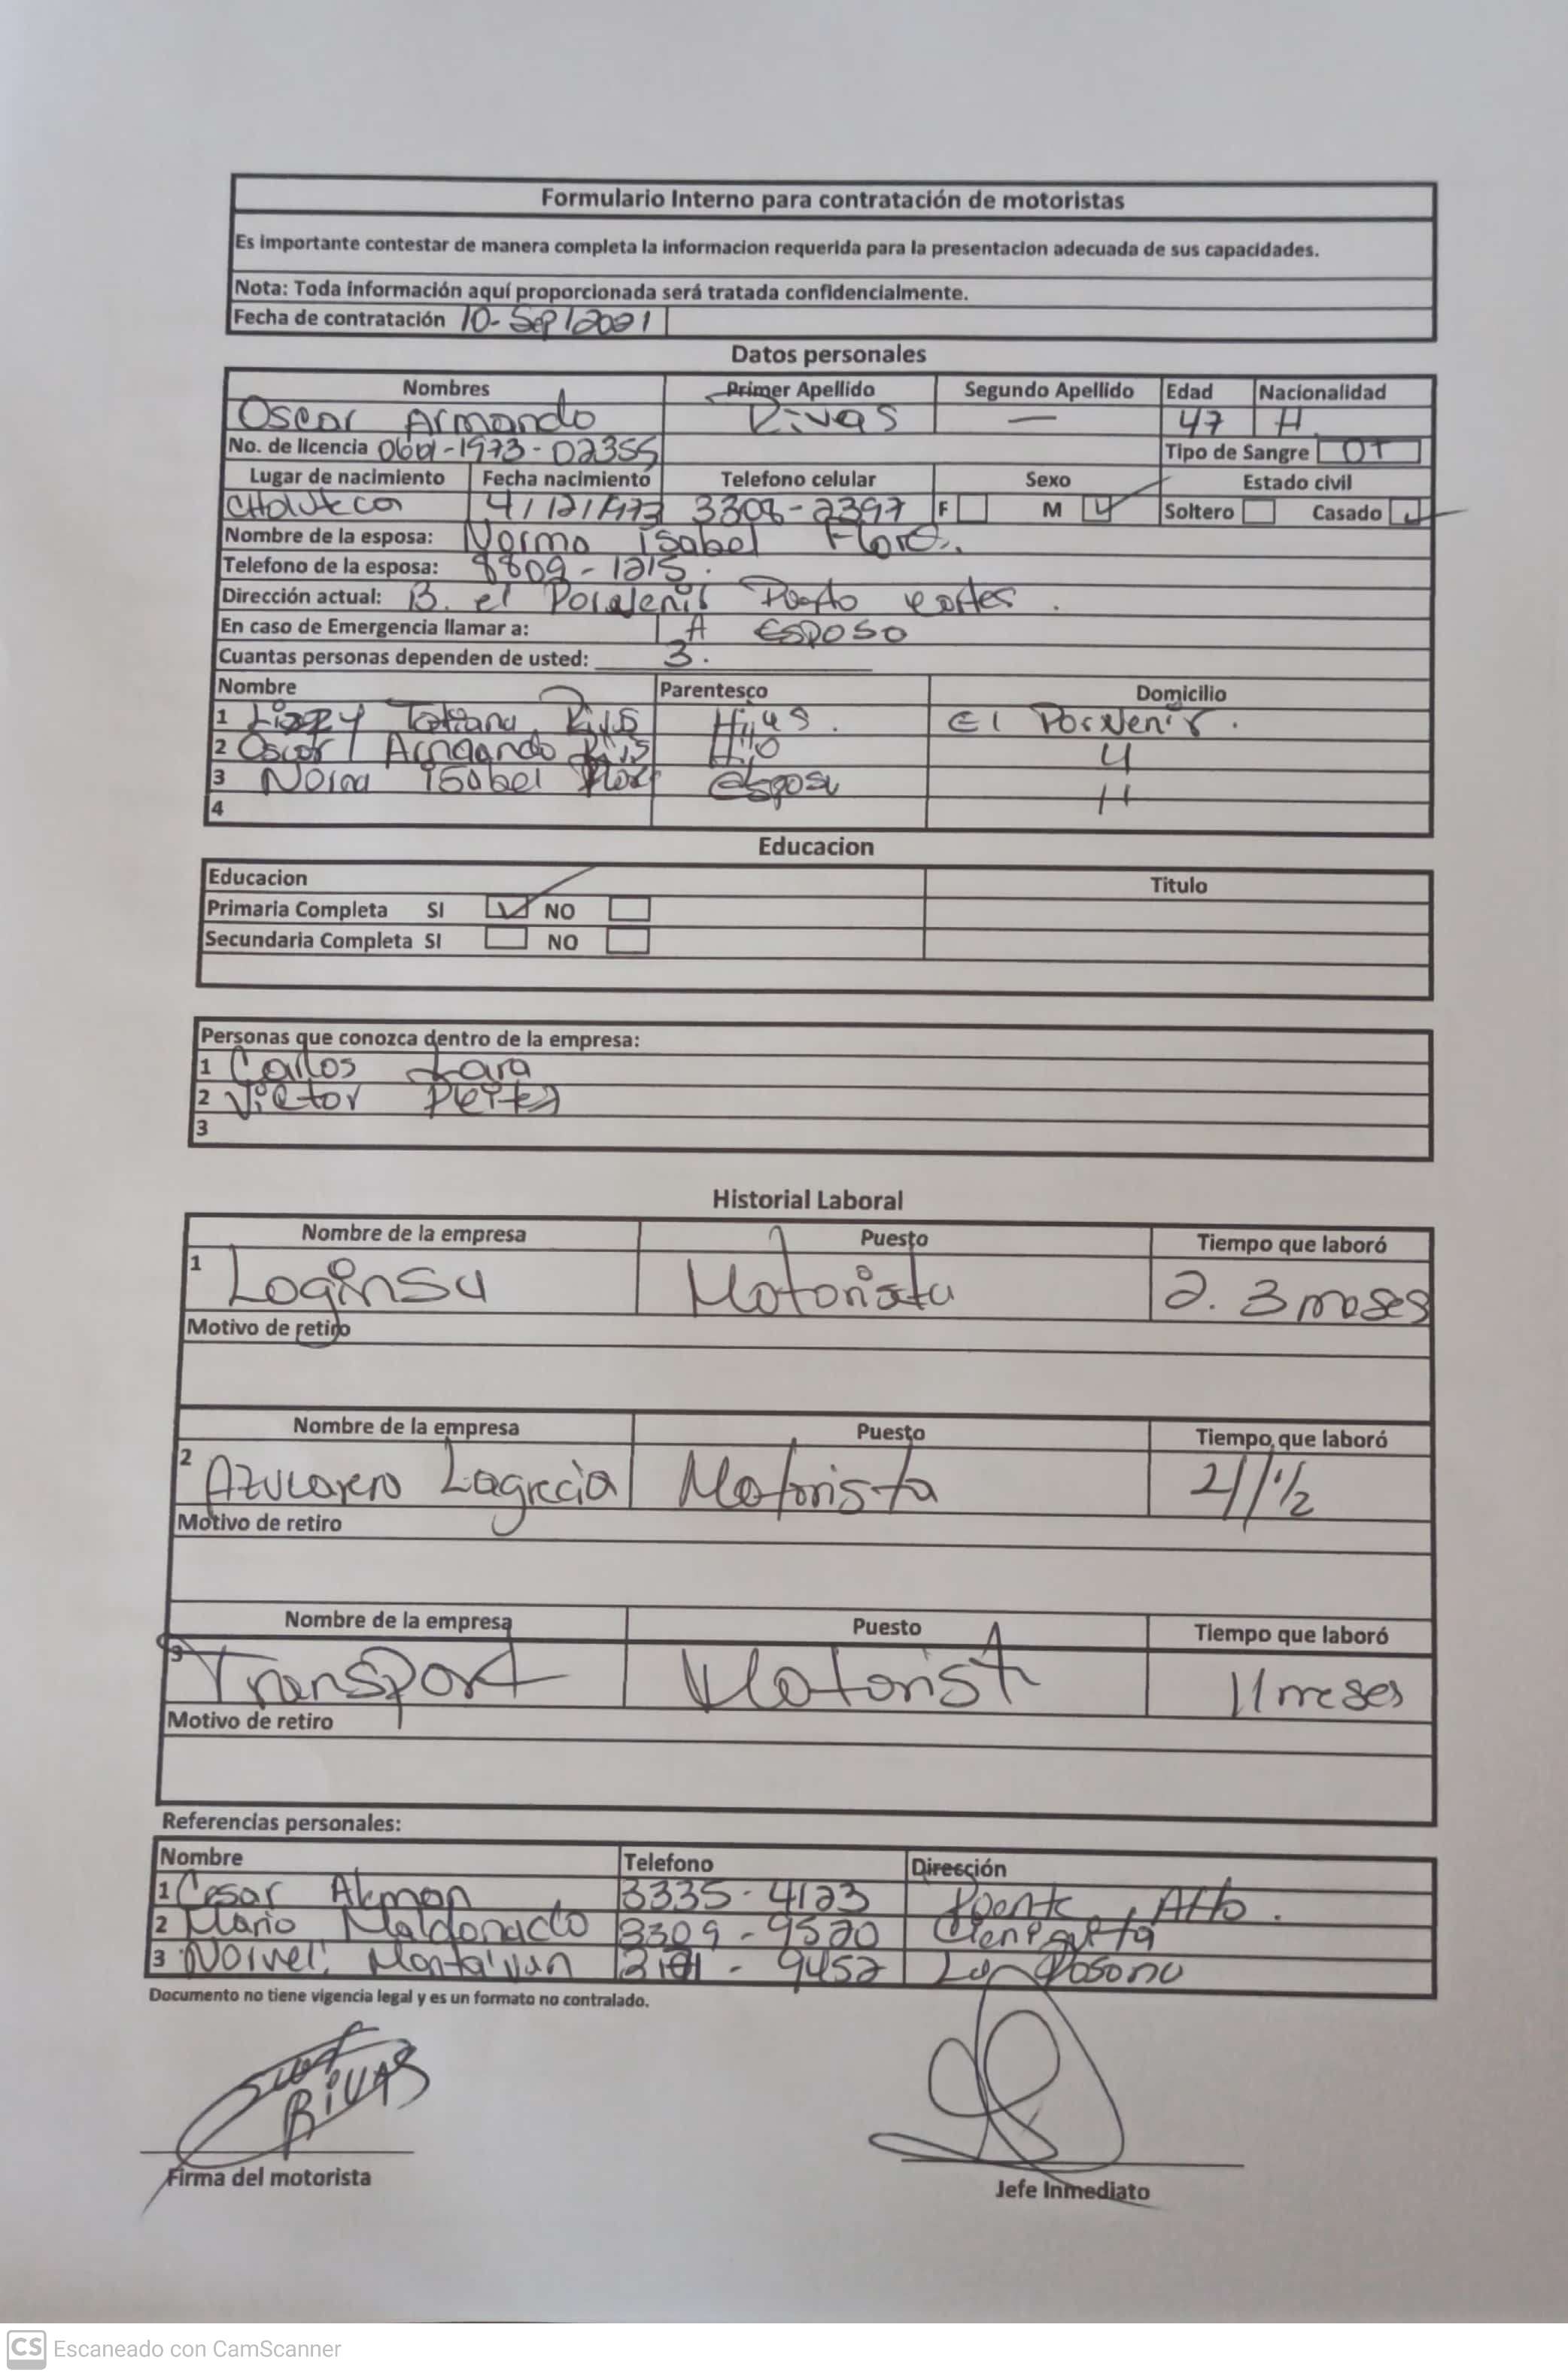 Formulario Interno para contratación de motoristas
Es importante contestar de manera completa la informacion requerida para la presentacion adecuada de sus capacidades.
Nota: Toda información aquí proporcionada será tratada confidencialmente.
Fecha de contratación 10-Sep/2021
Datos personales
Nombres Primer Apellido Segundo Apellido Edad Nacionalidad
Oscar Armando Rivas — 47 H
No. de licencia Tipo de Sangre O+
Lugar de nacimiento Fecha nacimiento Telefono celular Sexo Estado civil
4/12/1973 3308-2397 F M Soltero Casado
Nombre de la esposa: Norma Isabel
Telefono de la esposa: 8809-1215.
Dirección actual: B. el Porvenir Puerto Cortes.
En caso de Emergencia llamar a: A Esposo
Cuantas personas dependen de usted: 3.
Nombre Parentesco Domicilio
1 Tatiana Hijas. El Porvenir.
2 Oscar Armando Hijo 4
3 Isabel Esposa 11
4
Educacion
Educacion Titulo
Primaria Completa SI NO
Secundaria Completa SI NO
Personas que conozca dentro de la empresa:
1 Carlos Lara
2 Victor
3
Historial Laboral
Nombre de la empresa Puesto Tiempo que laboró
1 Loginsa Motorista 2. 3 meses
Motivo de retiro
Nombre de la empresa Puesto Tiempo que laboró
2 Azucarera Lagrecia Motorista
Motivo de retiro
Nombre de la empresa Puesto Tiempo que laboró
3 Transport Motorist 11 meses
Motivo de retiro
Referencias personales:
Nombre Telefono Dirección
1 Cesar 3335-4123 Puente Alto.
2 Mario Maldonado 3309-9520
3 Montalvan
Documento no tiene vigencia legal y es un formato no contralado.
Rivas
Firma del motorista Jefe Inmediato
CS Escaneado con CamScanner